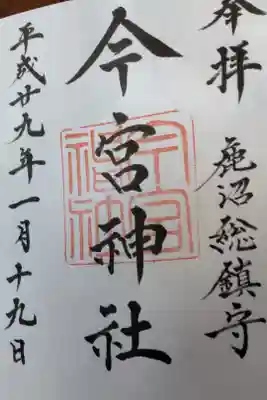 奉拝 鹿沼総鎮守
今宮神社
平成廿九年一月十九日